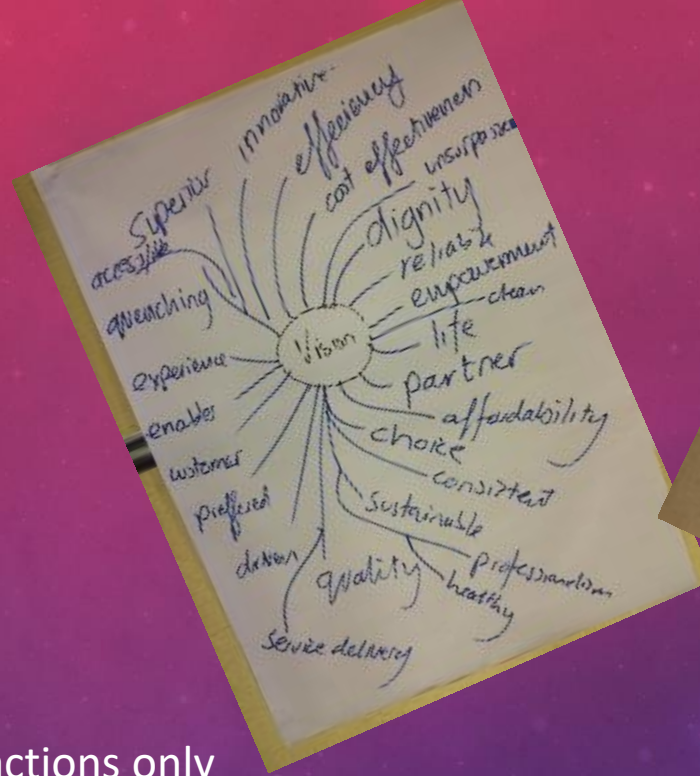 innovative
Superior
effeciency
cost effectiveness
unsurpassed
dignity
reliable
empowerment
clean
life
partner
affordability
choice
consistent
sustainable
professionalism
healthy
quality
service delivery
driven
preffered
customer
enables
experience
quenching
accessible
Vision
actions only